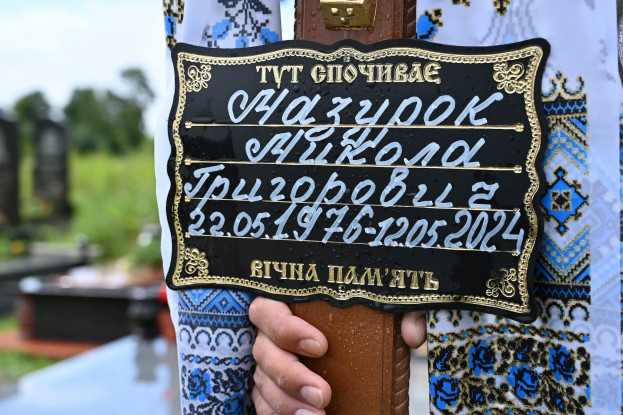 ТУТ СПОЧИВАЄ
Мазурок
Микола
Григорович
22.05.1976-12.05.2024
ВІЧНА ПАМ'ЯТЬ